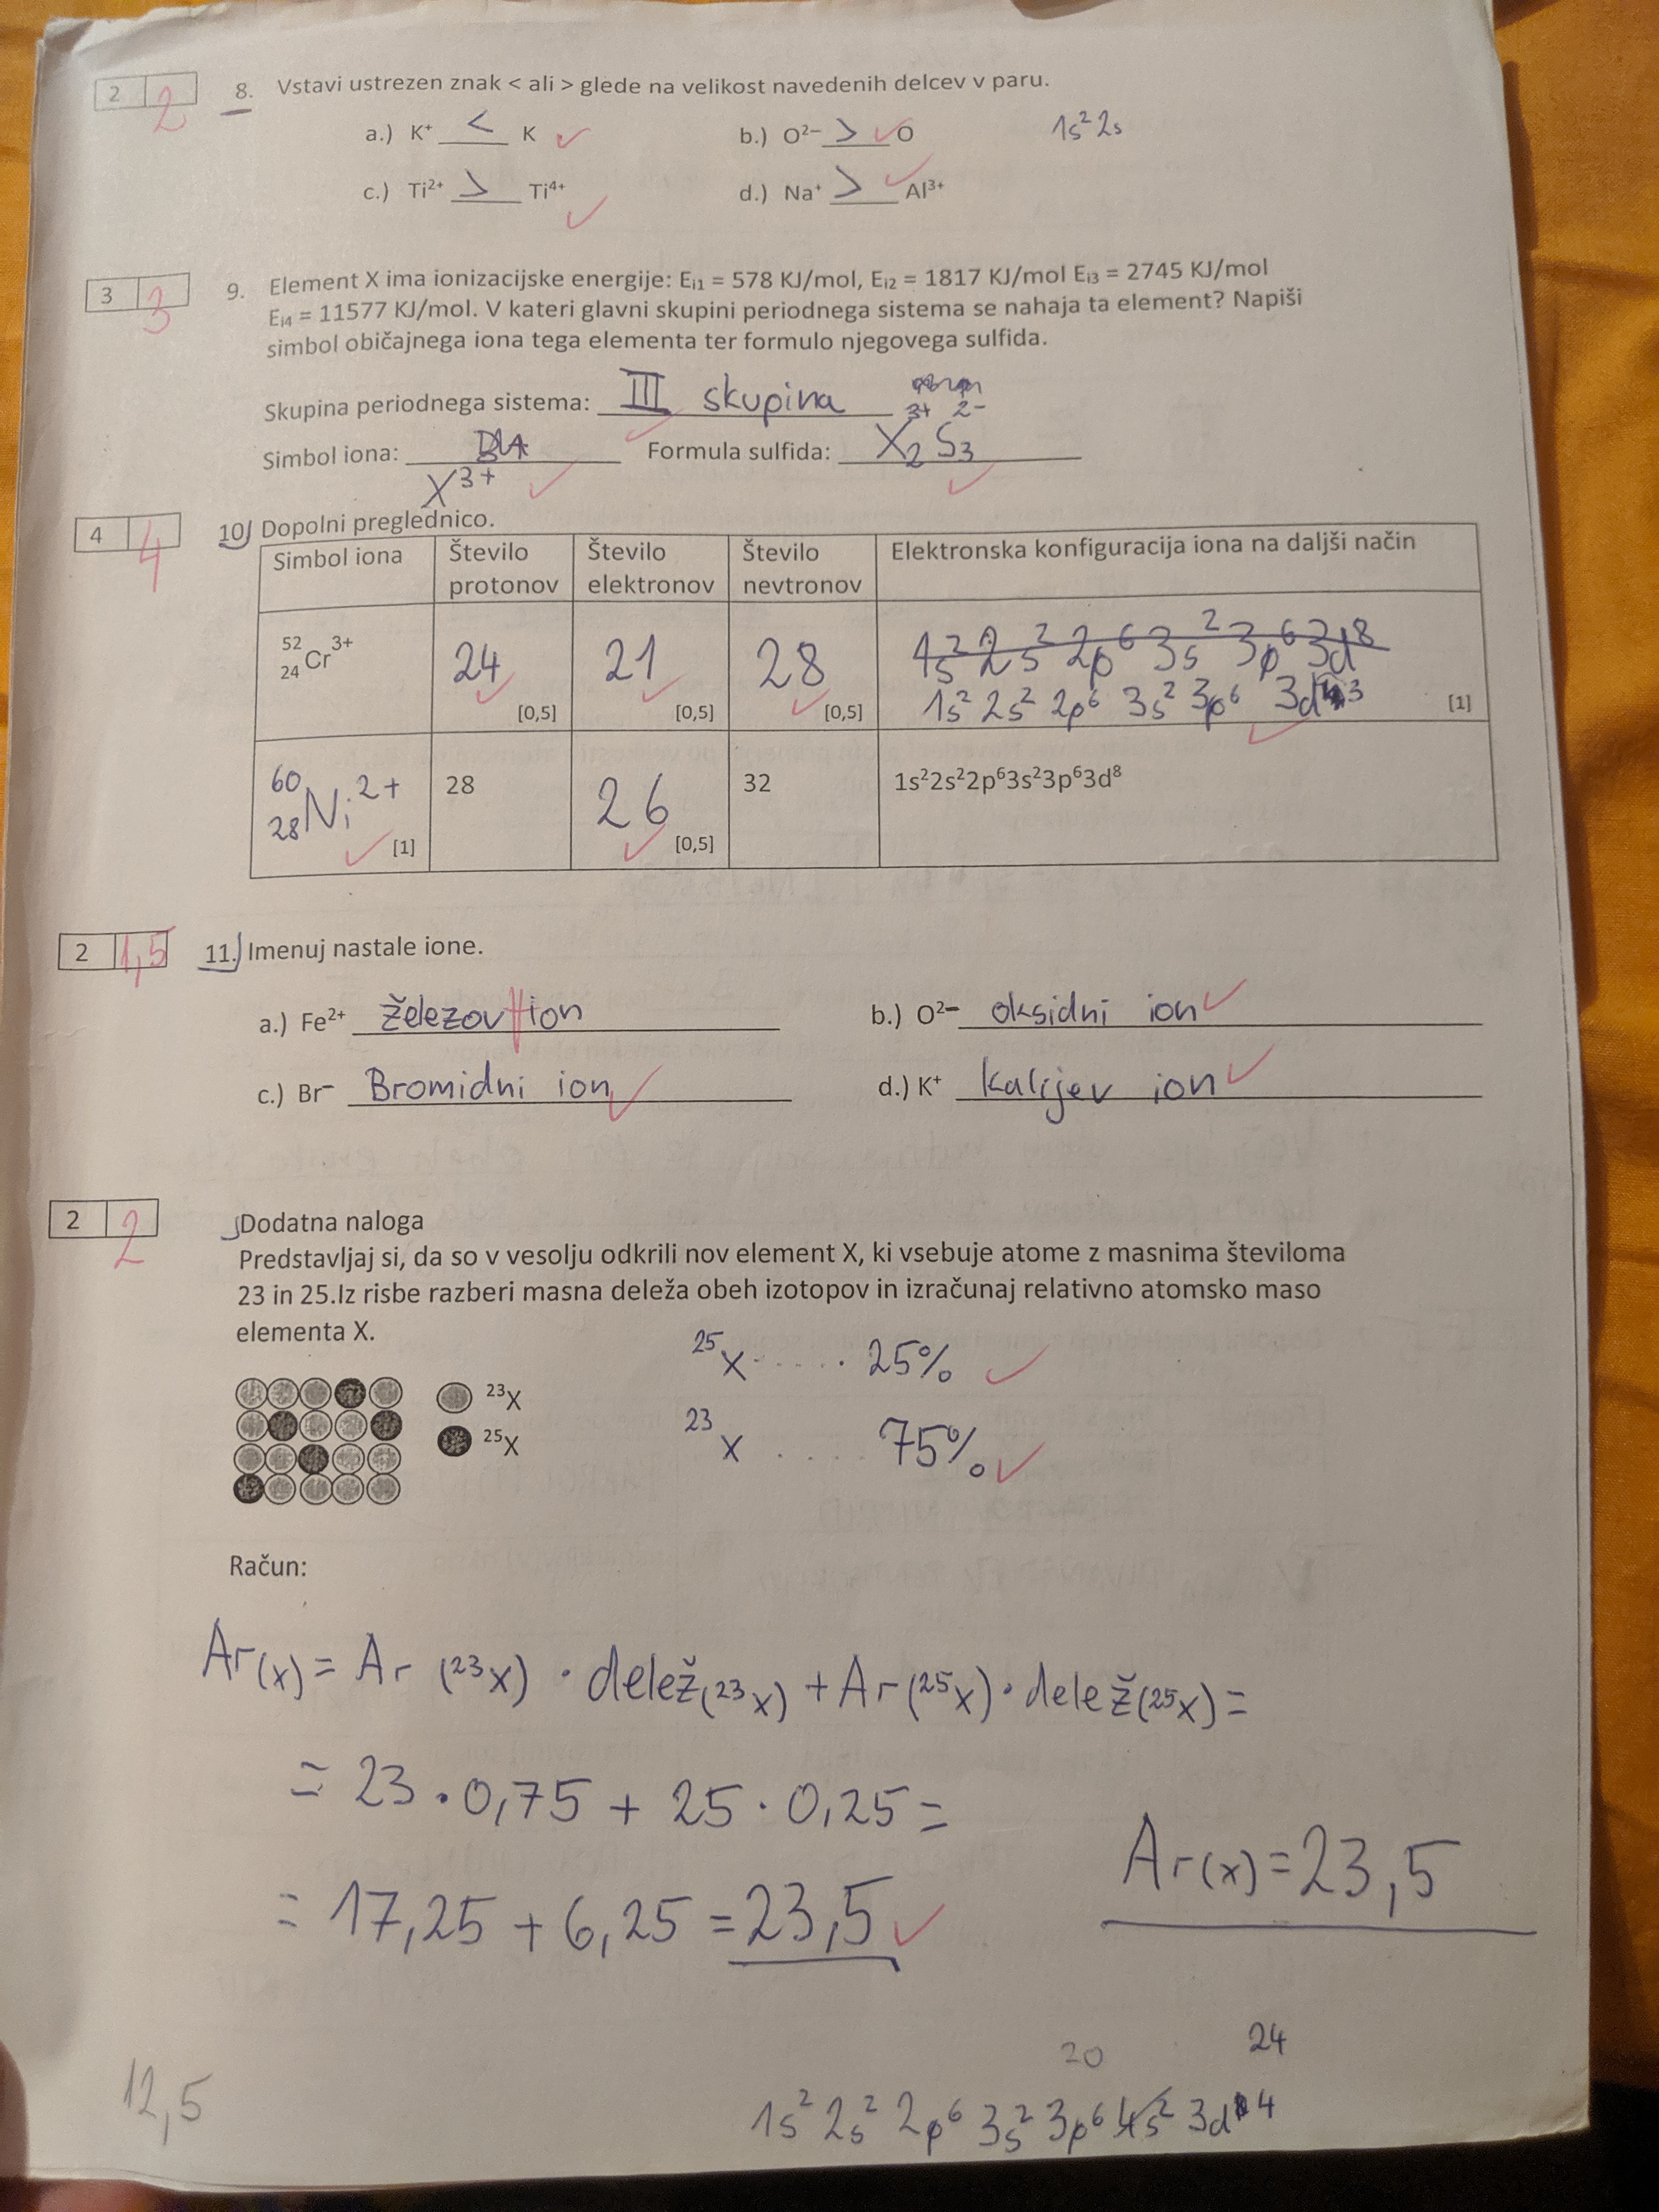 2 2 8. Vstavi ustrezen znak < ali > glede na velikost navedenih delcev v paru.
a.) K⁺ < K b.) O²⁻ > O 1s² 2s
c.) Ti²⁺ > Ti⁴⁺ d.) Na⁺ > Al³⁺
3 3 9. Element X ima ionizacijske energije: Eᵢ₁ = 578 KJ/mol, Eᵢ₂ = 1817 KJ/mol Eᵢ₃ = 2745 KJ/mol
Eᵢ₄ = 11577 KJ/mol. V kateri glavni skupini periodnega sistema se nahaja ta element? Napiši
simbol običajnega iona tega elementa ter formulo njegovega sulfida.
Skupina periodnega sistema: III skupina
3+ 2-
Simbol iona: X³⁺ Formula sulfida: X₂S₃
4 4 10. Dopolni preglednico.
Simbol iona Število protonov Število elektronov Število nevtronov Elektronska konfiguracija iona na daljši način
⁵²₂₄Cr³⁺ 24 [0,5] 21 [0,5] 28 [0,5] 1s² 2s² 2p⁶ 3s² 3p⁶ 3d⁸
1s² 2s² 2p⁶ 3s² 3p⁶ 3d³ [1]
⁶⁰₂₈Ni²⁺ [1] 28 26 [0,5] 32 1s²2s²2p⁶3s²3p⁶3d⁸
2 1,5 11. Imenuj nastale ione.
a.) Fe²⁺ železov ion b.) O²⁻ oksidni ion
c.) Br⁻ Bromidni ion d.) K⁺ kalijev ion
2 2 Dodatna naloga
Predstavljaj si, da so v vesolju odkrili nov element X, ki vsebuje atome z masnima številoma
23 in 25.Iz risbe razberi masna deleža obeh izotopov in izračunaj relativno atomsko maso
elementa X.
²⁵X ..... 25%
²³X
²⁵X
²³X ..... 75%
Račun:
Ar(x) = Ar (²³x) · delež(²³x) + Ar(²⁵x) · delež(²⁵x) =
= 23 · 0,75 + 25 · 0,25 =
Ar(x) = 23,5
= 17,25 + 6,25 = 23,5
20 24
12,5
1s² 2s² 2p⁶ 3s² 3p⁶ 4s² 3d⁴